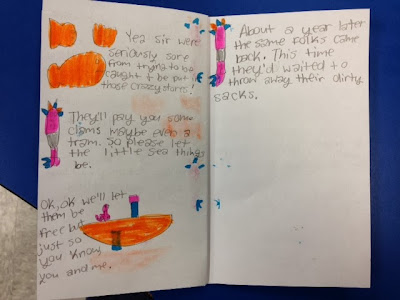 Yez sir were
seriously sore
from trying to be
caught & be put in
those crazy stores!
They'll pay you some
clams maybe even a
tram. So please let
the little sea things
be.
OK, ok we'll let
them be
free but
just so
you know
you and me.
About a year later
the same folks came
back. This time
they'd waited to
throw away their dirty
sacks.